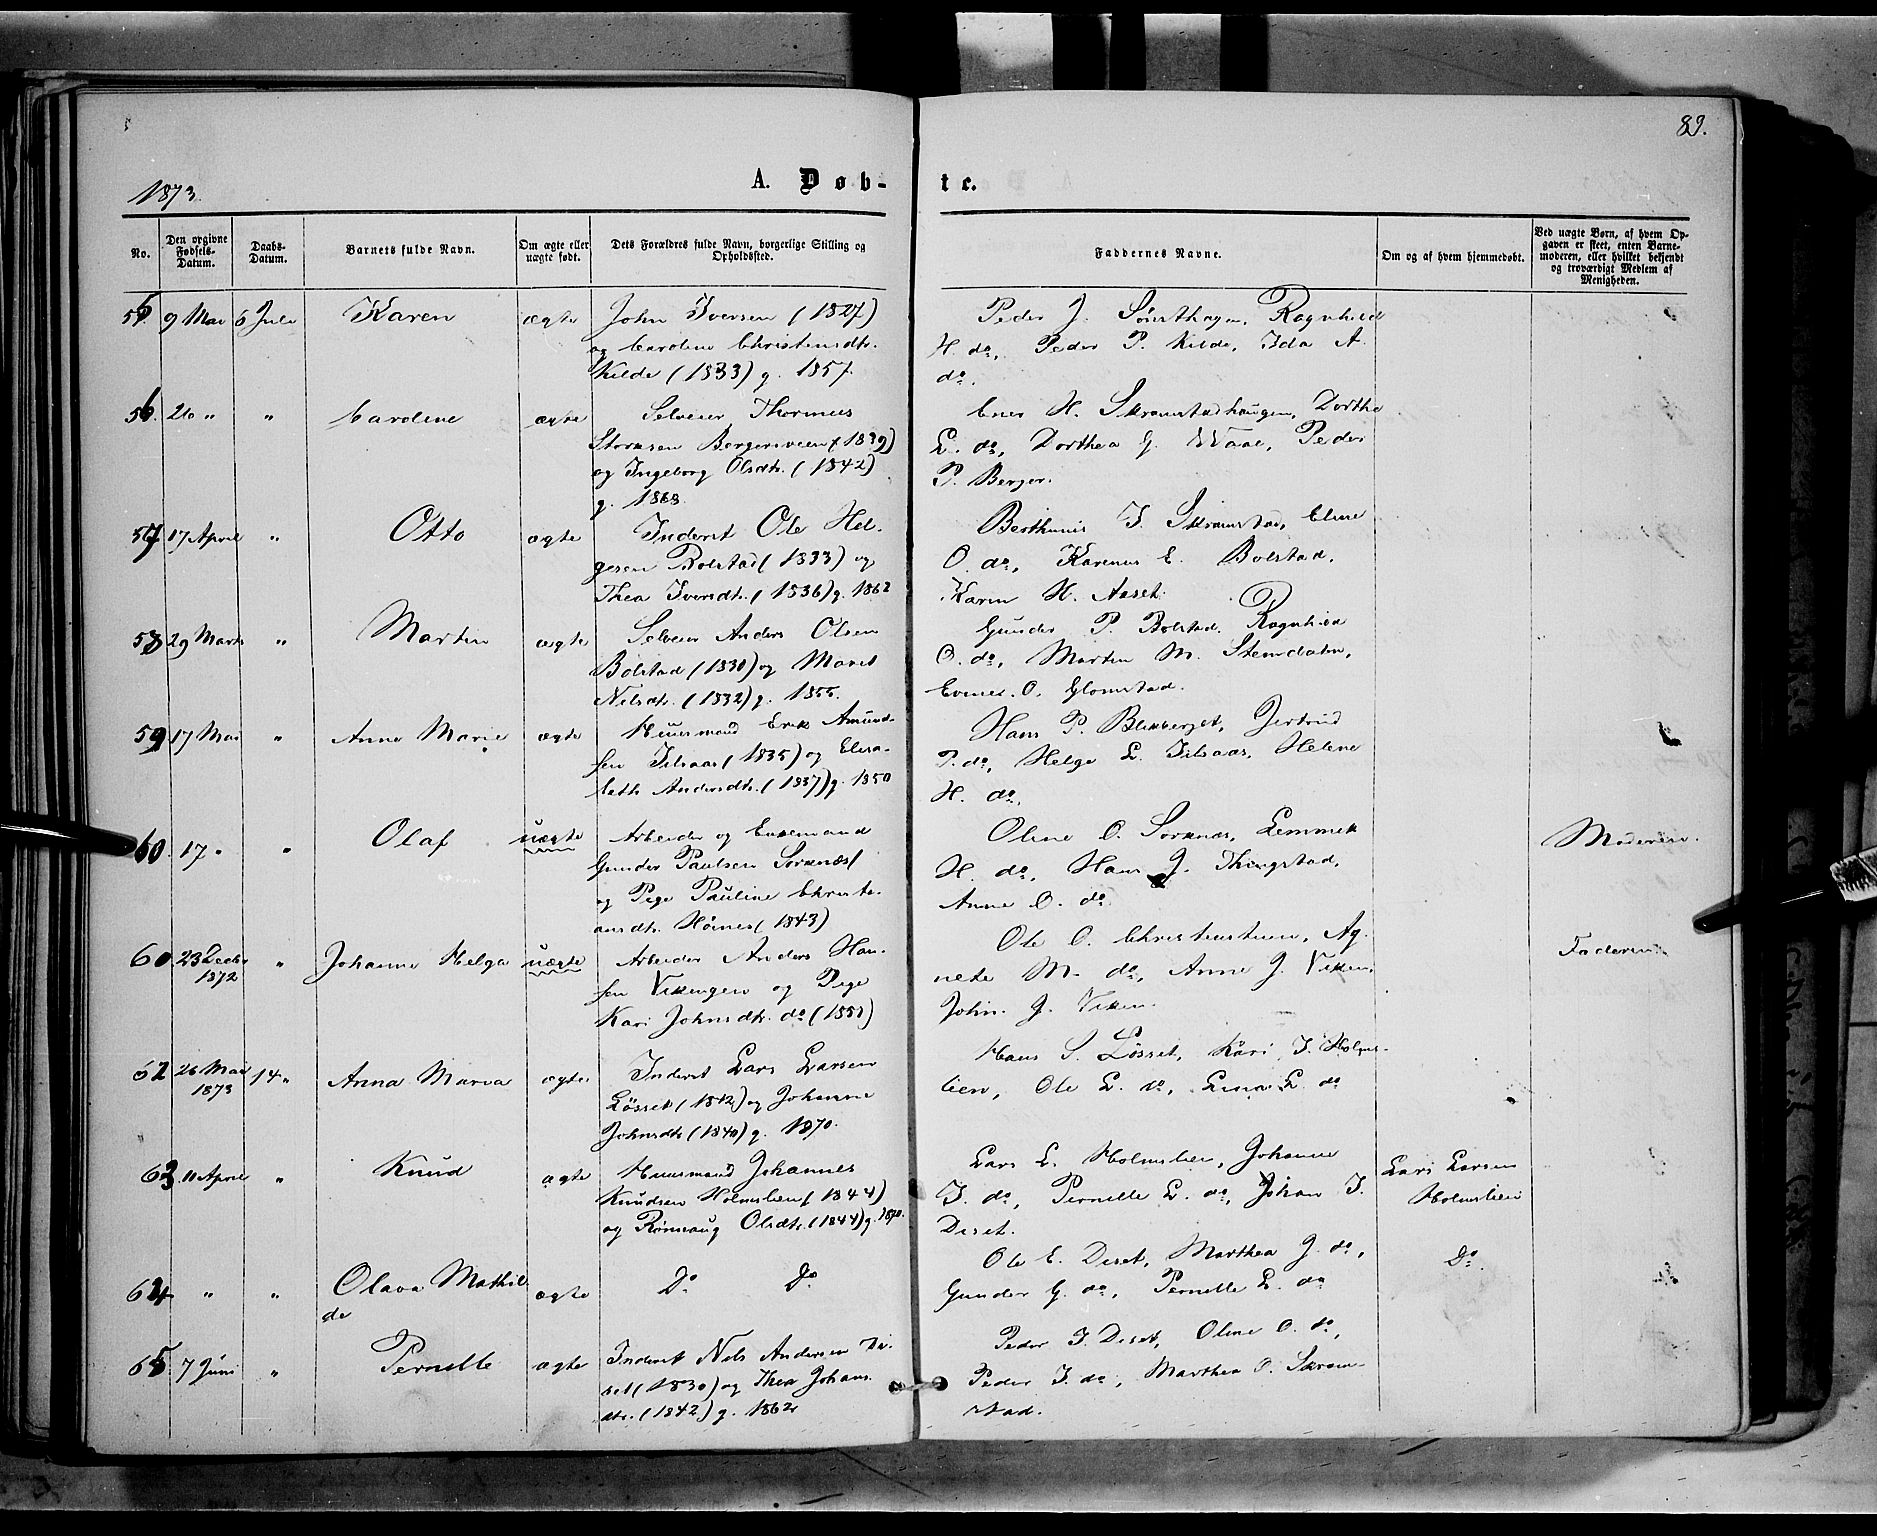 89.
1873.
A. Døb-
te.
No.
Den opgivne Fødsels-Datum.
Daabs-Datum.
Barnets fulde Navn.
Om ægte eller uægte født.
Dets Forældres fulde Navn, borgerlige Stilling og Opholdssted.
Faddernes Navne.
Om og af hvem hjemmedøbt.
Ved uægte Børn, af hvem Opgaven er skeet, enten Barnemoderen, eller hvilket bekjendt og troværdigt Medlem af Menigheden.
55. 9 Mai 6 Juli Karen ægte John Iversen (1827)
og Caroline Christensdtr.
Kilde (1833) g. 1857.
Peder J. Sørsthagen, Ragnhild
H. do, Peder P. Kilde, Ida A.
do.
56. 20 " " Caroline ægte Selveier Thormus
Storksen Bergersveen (1839)
og Ingeborg Olsdtr. (1842)
g. 1868.
Ener H. Skramstadhaugen, Dorthe
L. do, Dorthea G. Waae, Peder
P. Berger.
57 17 April " Otto ægte Inderst Ole Hel-
gesen Bolstad (1833) og
Thea Iversdtr. (1836) g. 1862
Berthinus I. Skramstad, Eline
O. do, Karenus E. Bolstad,
Karen H. Aaset.
58 29 Marts " Martin ægte Selveier Anders Olsen
Bolstad (1830) og Maret
Nilsdtr. (1832) g. 1855.
Gunder P. Bolstad, Ragnhild
O. do, Marten M. Stemdalen,
Evenes O. Glomstad.
59 17 Mai " Anne Marie ægte Huusmand Erik Amund-
sen Filsaas (1835) og Elisa-
beth Andersdtr. (1837) g. 1850
Hans P. Blekberget, Jertrud
P. do, Helge L. Filsaas, Helene
H. do.
60. 17 " " Olaf uægte Arbeider og Enkemand
Gunder Paulsen Sorknæs (
og Pige Pauline Christi-
ansdtr. Hörnes (1843)
Oline O. Sorknæs, Lemmek
H. do, Hans J. Thingstad,
Anne O. do
Moderen.
60. 23 Decbr 1872 " Johanne Helga uægte Arbeider Anders Han-
sen Vikengen og Pige
Kari Johnsdtr. do (1851)
Ole O. Christiansen, Ag-
nete M. do, Anne J. Viken,
John J. Viken.
Faderen.
62 26 Mai 1873 14 " Anna Maria ægte Inderst Lars Larsen
Løsset (1842) og Johanne
Johnsdtr (1840) g. 1870.
Hans S. Løsset, Kari J. Holms-
lien, Ole L. do, Lina L. do
63 11 April " Knud ægte Huusmand Johannes
Knudsen Holmslien (1844)
og Rønnaug Olsdtr. (1844) g. 1870.
Lars L. Holmslien, Johanne
J. do, Pernille L. do, Johan J.
Deset.
Lars Larsen
Holmslien
64 " " Olava Mathil-
de ægte Do Do
Ole E. Deset, Marthea J. do,
Gunder G. do, Pernille L. do
Do.
65 7 Juni " Pernille ægte Inderst Nils Andersen De-
set (1830) og Thea Johans-
dtr. (1842) g. 1862
Peder J. Deset, Oline O. do,
Peder J. do, Marthea O. Skram-
stad.